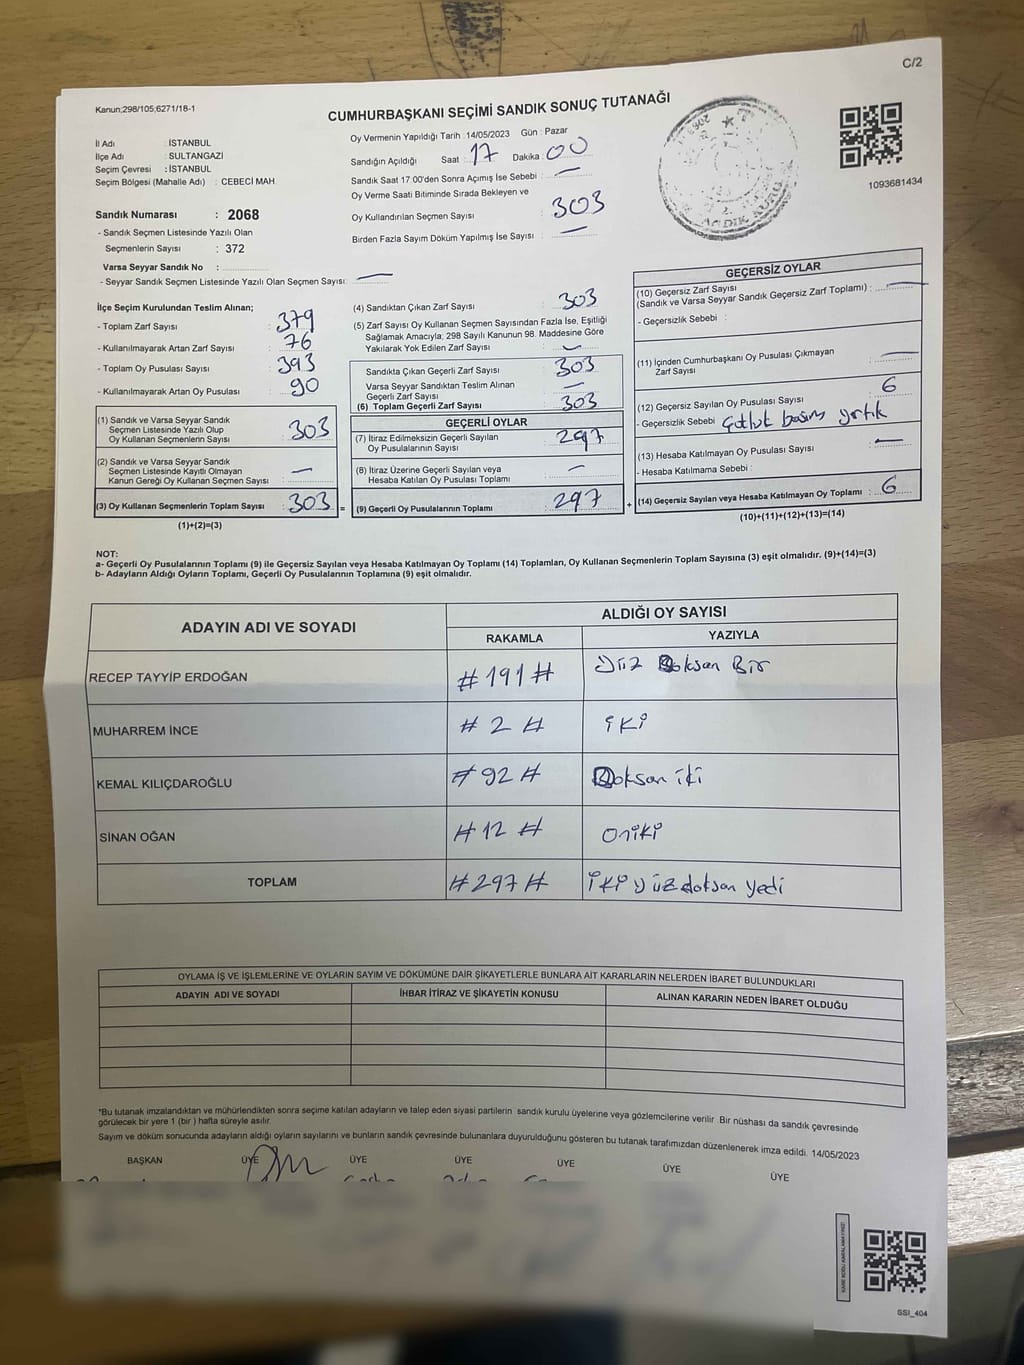 C/2
Kanun;298/105;6271/18-1
CUMHURBAŞKANI SEÇİMİ SANDIK SONUÇ TUTANAĞI
1093681434
İl Adı : İSTANBUL
İlçe Adı : SULTANGAZİ
Seçim Çevresi : İSTANBUL
Seçim Bölgesi (Mahalle Adı) : CEBECİ MAH.
Sandık Numarası : 2068
- Sandık Seçmen Listesinde Yazılı Olan
Seçmenlerin Sayısı : 372
Varsa Seyyar Sandık No :
- Seyyar Sandık Seçmen Listesinde Yazılı Olan Seçmen Sayısı: —
Oy Vermenin Yapıldığı Tarih : 14/05/2023 Gün : Pazar
Sandığın Açıldığı Saat : 17 Dakika : 00
Sandık Saat 17 00'den Sonra Açımış İse Sebebi : —
Oy Verme Saati Bitiminde Sırada Bekleyen ve
Oy Kullandırılan Seçmen Sayısı : 303
Birden Fazla Sayım Döküm Yapılmış İse Sayısı : —
SANDIK KURU
İlçe Seçim Kurulundan Teslim Alınan;
- Toplam Zarf Sayısı : 379
- Kullanılmayarak Artan Zarf Sayısı : 76
- Toplam Oy Pusulası Sayısı : 393
- Kullanılmayarak Artan Oy Pusulası : 90
(1) Sandık ve Varsa Seyyar Sandık
Seçmen Listesinde Yazılı Olup
Oy Kullanan Seçmenlerin Sayısı : 303
(2) Sandık ve Varsa Seyyar Sandık
Seçmen Listesinde Kayıtlı Olmayan
Kanun Gereği Oy Kullanan Seçmen Sayısı : —
(3) Oy Kullanan Seçmenlerin Toplam Sayısı : 303 =
(1)+(2)=(3)
(4) Sandıktan Çıkan Zarf Sayısı : 303
(5) Zarf Sayısı Oy Kullanan Seçmen Sayısından Fazla İse, Eşitliği
Sağlamak Amacıyla; 298 Sayılı Kanunun 98. Maddesine Göre
Yakılarak Yok Edilen Zarf Sayısı : —
Sandıkta Çıkan Geçerli Zarf Sayısı : 303
Varsa Seyyar Sandıktan Teslim Alınan
Geçerli Zarf Sayısı : —
(6) Toplam Geçerli Zarf Sayısı : 303
GEÇERLİ OYLAR
(7) İtiraz Edilmeksizin Geçerli Sayılan
Oy Pusulalarının Sayısı : 297
(8) İtiraz Üzerine Geçerli Sayılan veya
Hesaba Katılan Oy Pusulası Toplamı : —
(9) Geçerli Oy Pusulalarının Toplamı : 297 +
GEÇERSİZ OYLAR
(10) Geçersiz Zarf Sayısı
(Sandık ve Varsa Seyyar Sandık Geçersiz Zarf Toplamı) : —
- Geçersizlik Sebebi :
(11) İçinden Cumhurbaşkanı Oy Pusulası Çıkmayan
Zarf Sayısı : —
(12) Geçersiz Sayılan Oy Pusulası Sayısı : 6
- Geçersizlik Sebebi yırtık
(13) Hesaba Katılmayan Oy Pusulası Sayısı : —
- Hesaba Katılmama Sebebi :
(14) Geçersiz Sayılan veya Hesaba Katılmayan Oy Toplamı : 6
(10)+(11)+(12)+(13)=(14)
NOT:
a- Geçerli Oy Pusulalarının Toplamı (9) ile Geçersiz Sayılan veya Hesaba Katılmayan Oy Toplamı (14) Toplamları, Oy Kullanan Seçmenlerin Toplam Sayısına (3) eşit olmalıdır. (9)+(14)=(3)
b- Adayların Aldığı Oyların Toplamı, Geçerli Oy Pusulalarının Toplamına (9) eşit olmalıdır.
ADAYIN ADI VE SOYADI
ALDIĞI OY SAYISI
RAKAMLA YAZIYLA
RECEP TAYYİP ERDOĞAN #191# Yüz Doksan Bir
MUHARREM İNCE # 2 # iki
KEMAL KILIÇDAROĞLU #92# Doksan iki
SİNAN OĞAN #12 # oniki
TOPLAM #297# iki yüz doksan yedi
OYLAMA İŞ VE İŞLEMLERİNE VE OYLARIN SAYIM VE DÖKÜMÜNE DAİR ŞİKAYETLERLE BUNLARA AİT KARARLARIN NELERDEN İBARET BULUNDUKLARI
ADAYIN ADI VE SOYADI İHBAR İTİRAZ VE ŞİKAYETİN KONUSU ALINAN KARARIN NEDEN İBARET OLDUĞU
*Bu tutanak imzalandıktan ve mühürlendikten sonra seçime katılan adayların ve talep eden siyasi partilerin sandık kurulu üyelerine veya gözlemcilerine verilir. Bir nüshası da sandık çevresinde
görülecek bir yere 1 (bir ) hafta süreyle asılır.
Sayım ve döküm sonucunda adayların aldığı oyların sayılarını ve bunların sandık çevresinde bulunanlara duyurulduğunu gösteren bu tutanak tarafımızdan düzenlenerek imza edildi. 14/05/2023
BAŞKAN ÜYE ÜYE ÜYE ÜYE ÜYE ÜYE
SSI_404